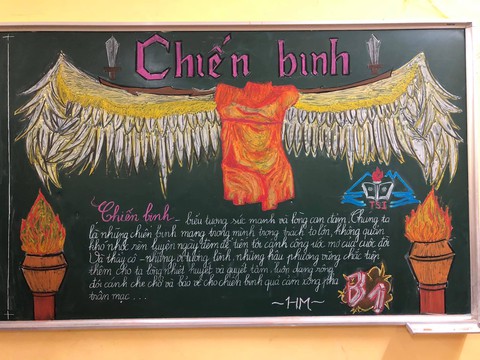 Chiến binh
Chiến binh - biểu tượng sức mạnh và lòng can đảm. Chúng ta
là những chiến binh mang trong mình trọng trách to lớn, không quản
khó nhọc rèn luyện ngày đêm để tiến tới cánh cổng ước mơ của cuộc đời
Và thầy cô - những vị tướng lĩnh, những hậu phương vững chắc tiếp
thêm cho ta lòng nhiệt huyết và quyết tâm, luôn dang rộng
đôi cánh che chở và bảo vệ cho chiến binh quả cảm xông pha
trận mạc...
~HM~
B1